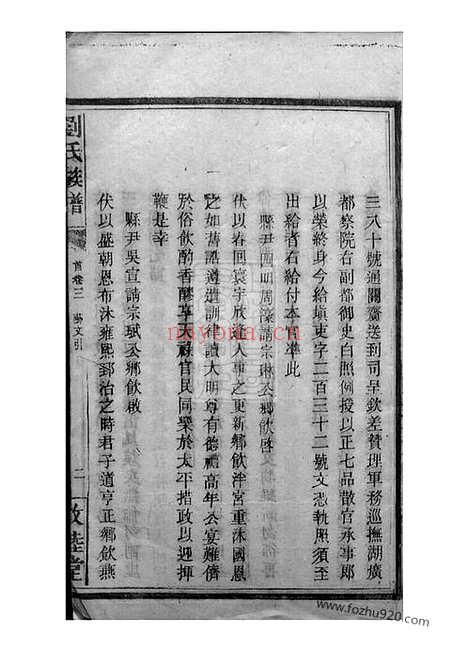 三八十號通關齎送到司呈欽差贊理軍務巡撫湖廣
都察院右副都御史白照例授以正七品散官承事郎
以榮終身今給塡東字二百三十二號文憑執照須至
出給者右給付本 準此
縣尹四明周濠請宗琳公鄉飲啓
伏以春回寰宇欣逢人事之更新鄉飲泮宮重沐國恩
之如舊誥遵遺訓律讀大明尊有德禮高年公宴難儕
於俗飲酌香醪享天祿官民同樂於太平措政以迎揮
鞭是幸
縣尹吳宣請宗斌公鄉飲啟
伏以盛朝恩布沐雍熙郅治之時君子道亨正鄉飲燕
劉氏族譜
首卷三 引
二 敦睦堂
nayona.cn
www.fozhu920.com